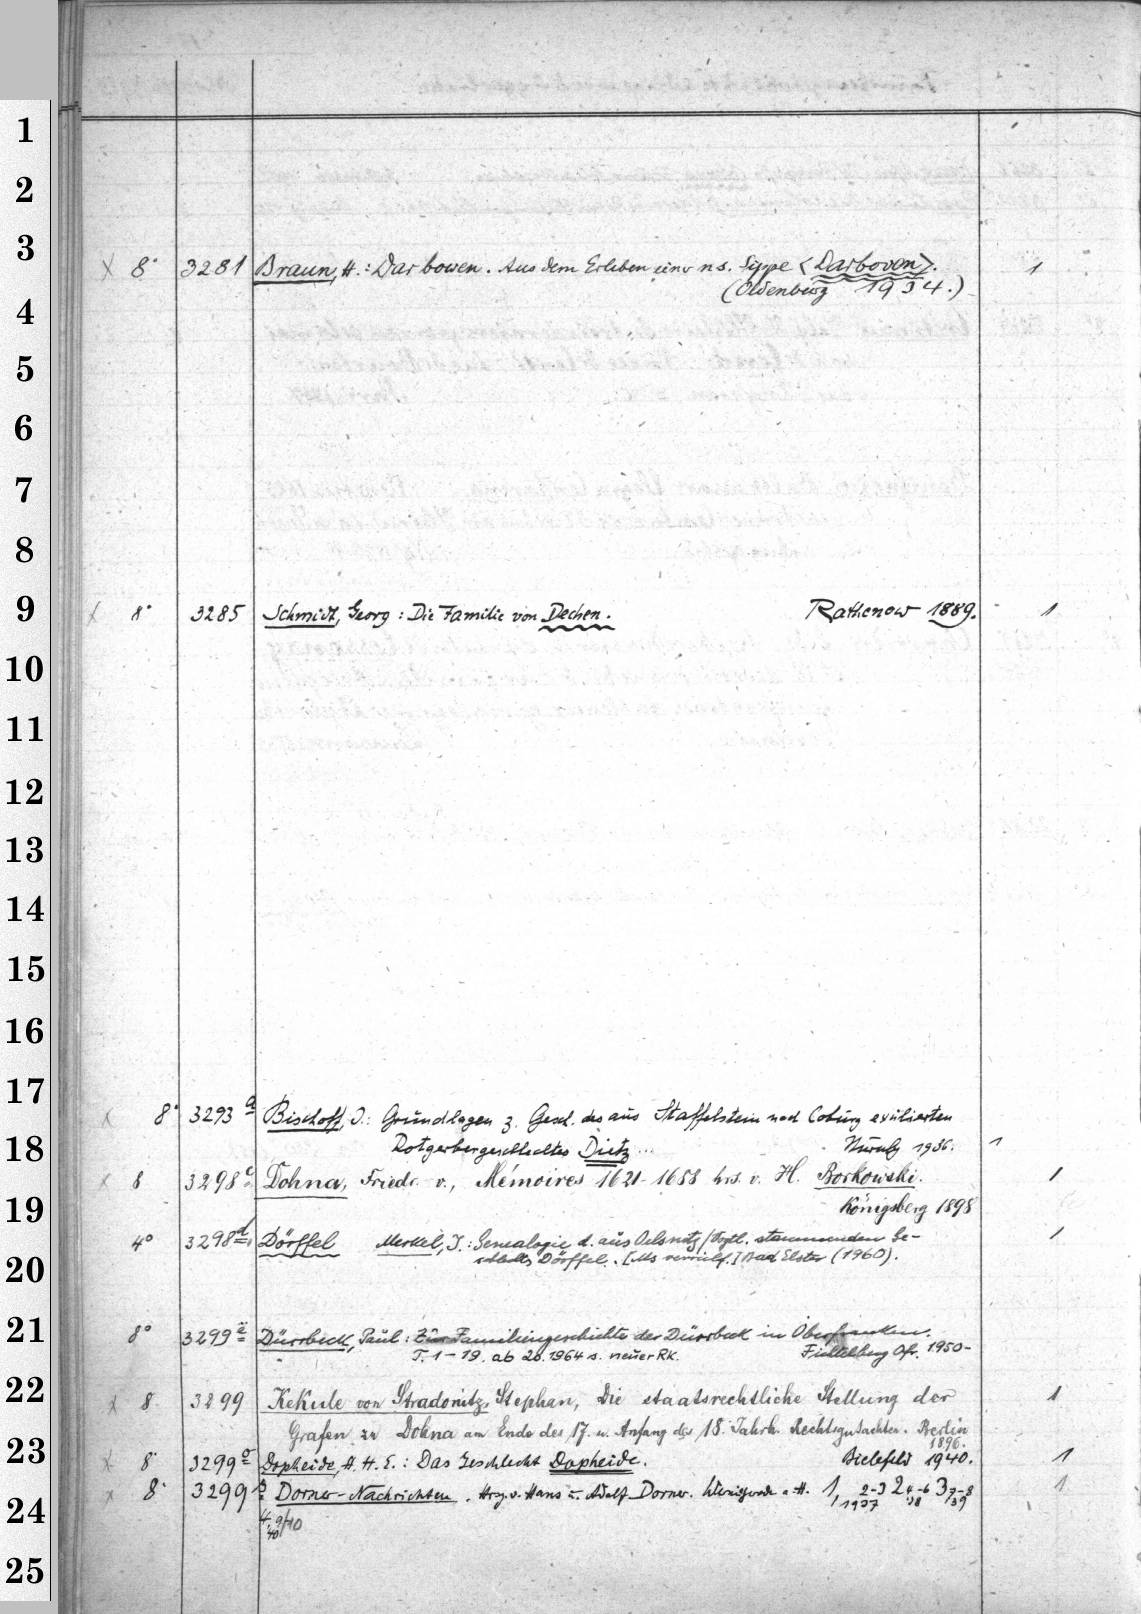 1
2
3
X 8° 3281 Braun, H.: Darbowen. Aus dem Erleben einer ns. Sippe <Darboven>. 1
(Oldenburg 1934.)
4
5
6
7
8
9
X 8° 3285 Schmidt, Georg: Die Familie von Dechen. Rathenow 1889. 1
10
11
12
13
14
15
16
17
X 8° 3293 a Bischoff, J.: Grundlagen z. Gesch. des aus Staffelstein nach Coburg exulierten
18
Rotgerbergeschlechtes Dietz ... Nürnbg 1936. 1
X 8 3298 c Dohna, Friedr. v., Mémoires 1621-1688 hrs. v. H. Borkowski. 1
19
Königsberg 1898
4° 3298 d Dörffel Merkel, J.: Genealogie d. aus Oelsnitz/Vogtl. stammenden Ge- 1
schlechts Dörffel. [Ms vervielf.] Bad Elster (1960).
20
21
8° 3299 Dürrbeck, Paul: Zur Familiengeschichte der Dürrbeck in Oberfranken.
T. 1-19. ab 20.1964 s. neuer RK. Fichtelberg Ofr. 1950-
22
X 8 3299 Kekule von Stradonitz, Stephan, Die staatsrechtliche Stellung der 1
Grafen zu Dohna am Ende des 17. u. Anfang des 18. Jahrh. Rechtsgutachten. Berlin
1896.
23
X 8 3299 a Dopheide, H. H. E.: Das Geschlecht Dopheide. Bielefeld 1940. 1
X 8° 3299 b Dorner-Nachrichten. Hrsg. v. Hans u. Adolf Dorner. 1, 2-3 2 4-6 3 7-8 1
1937 38 39
24
4, 9/10
40
25